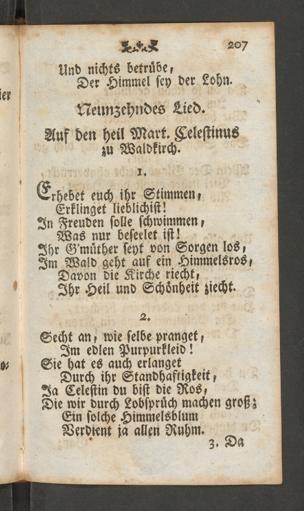 207
Und nichts betrübe,
Der Himmel sey der Lohn.
Neunzehndes Lied.
Auf den heil Mart. Celestinus
zu Waldkirch.
1.
Erhebet euch ihr Stimmen,
Erklinget lieblichist!
In Freuden solle schwimmen,
Was nur beseelet ist!
Ihr G'müther seyt von Sorgen los,
Im Wald geht auf ein Himmelsros,
Davon die Kirche riecht,
Ihr Heil und Schönheit ziecht.
2.
Secht an, wie selbe pranget,
Im edlen Purpurkleid!
Sie hat es auch erlanget
Durch ihr Standhaftigkeit,
Ja Celestin du bist die Ros,
Die wir durch Lobsprüch machen groß;
Ein solche Himmelsblum
Verdient ja allen Ruhm.
3. Da